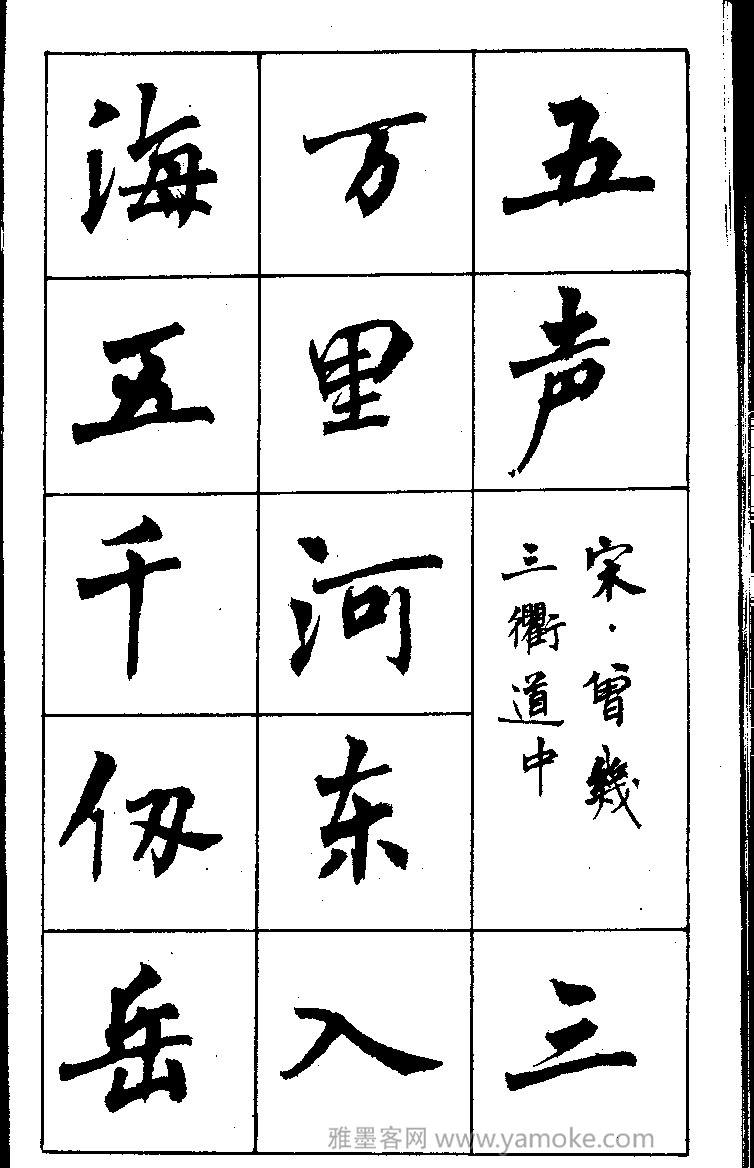 五声
宋·曾幾
三衢道中
三
万里河东入
海五千仞岳
雅墨客网 www.yamoke.com